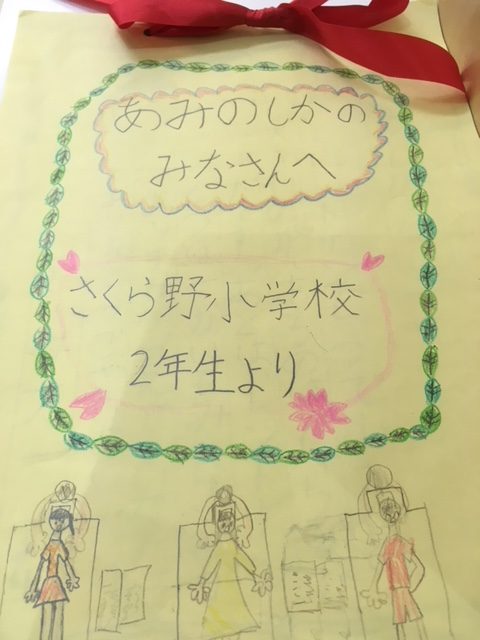 あみのしかの
みなさんへ
さくら野小学校
2年生より